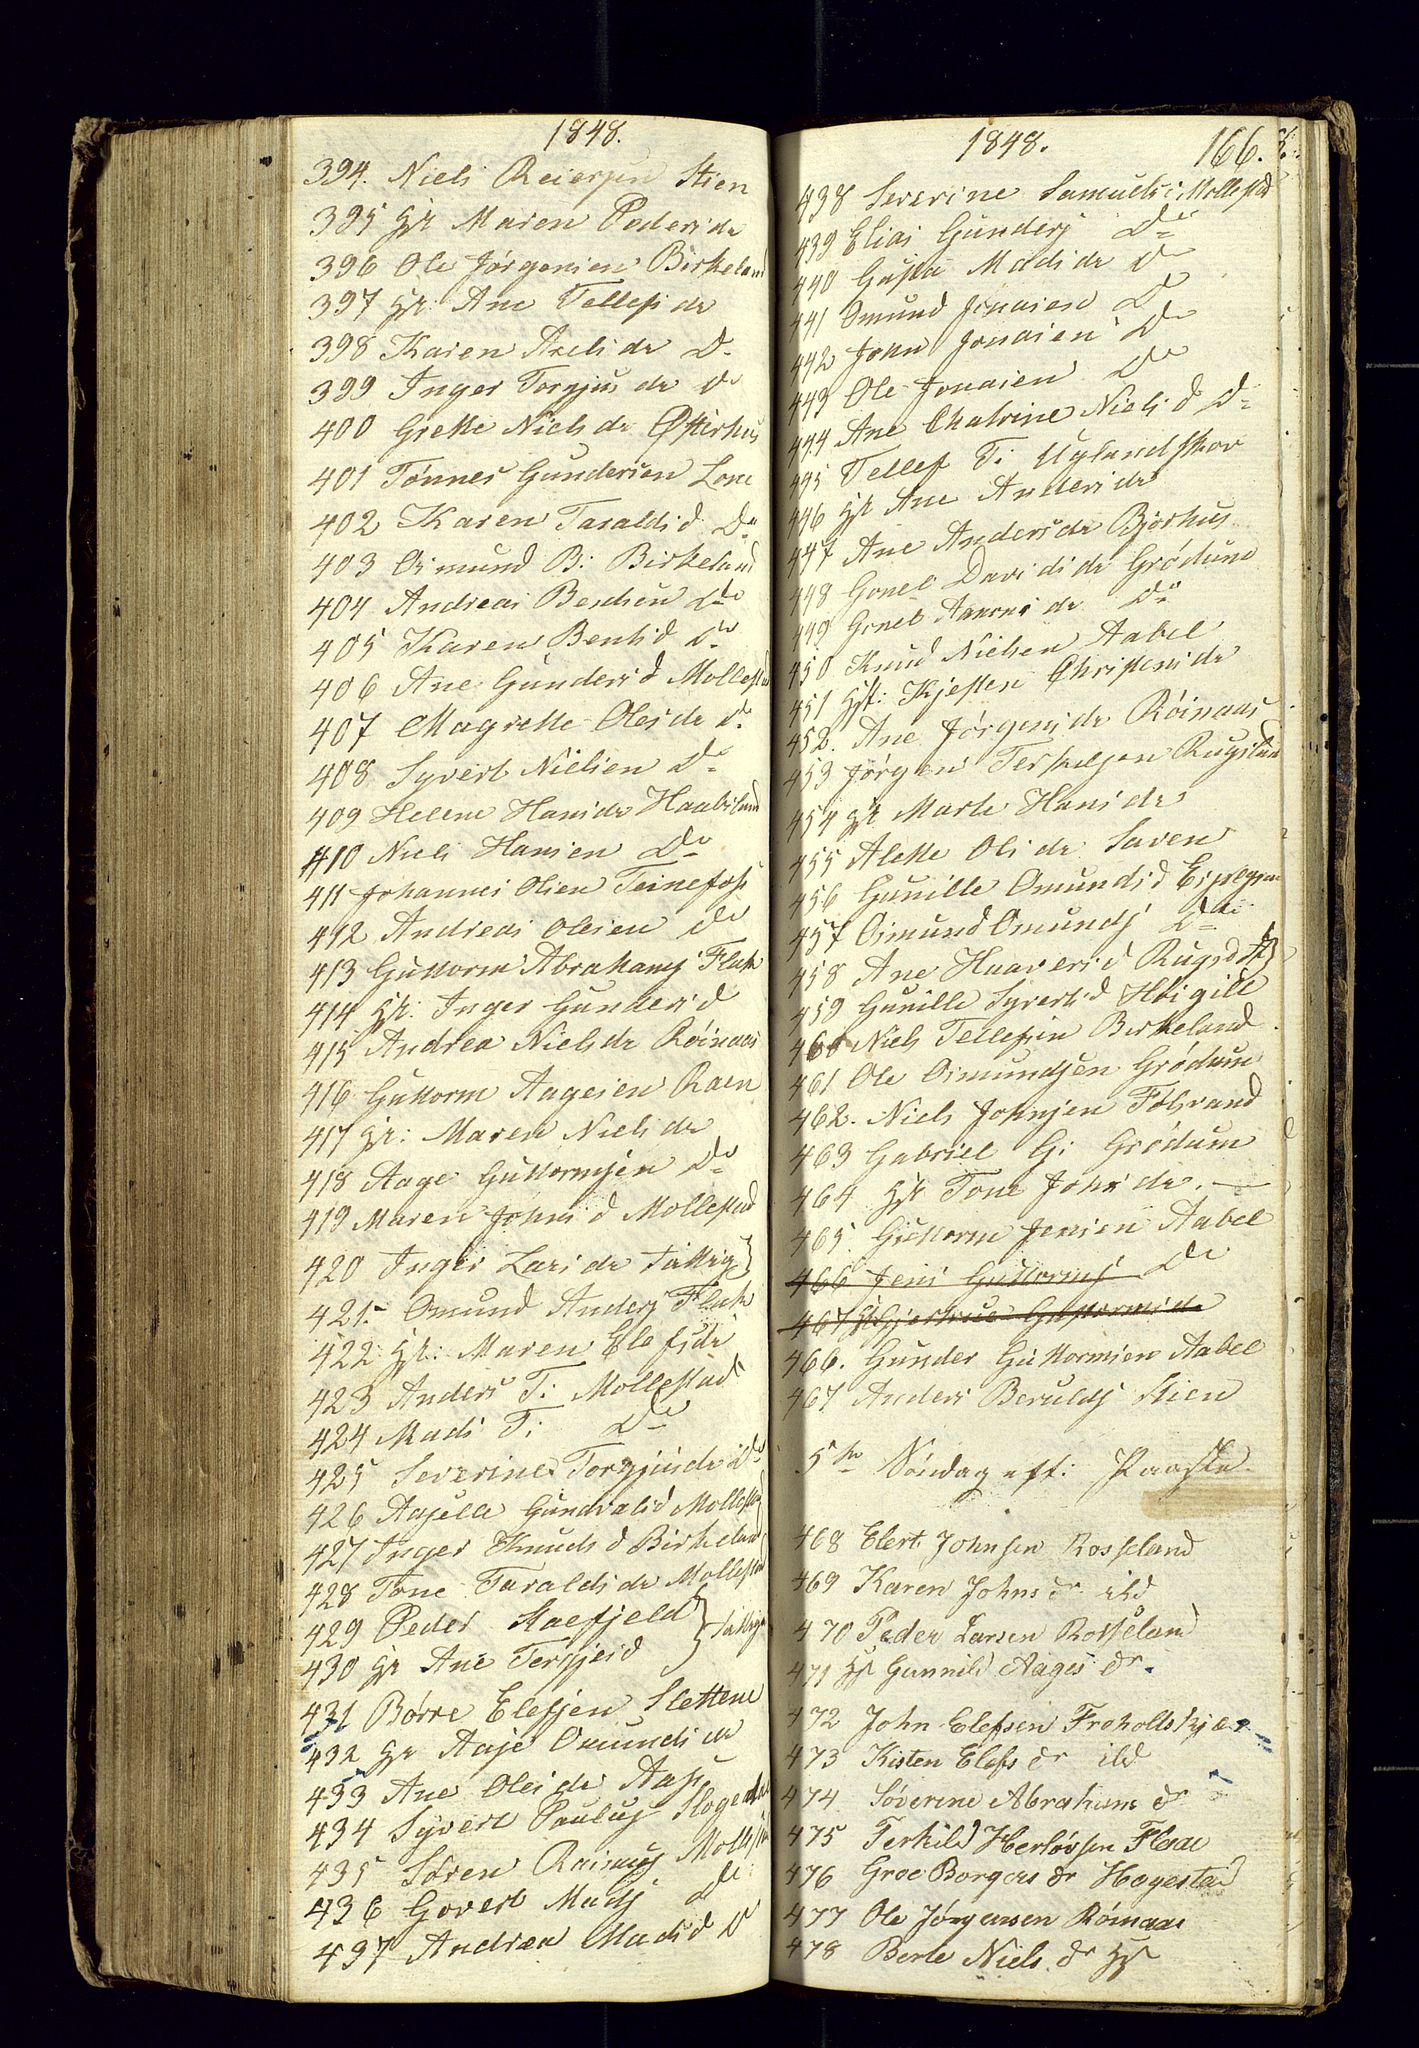 1848.
394. Niels Reiersen Stien
395 Hst Maren Peders dr
396 Ole Jørgensen Birkeland
397 Hst. Ane Tellefs dr
398 Karen Axels dr Do
399 Inger Torgjus dr Do
400 Grette Niels dr Østerhus
401 Tønnes Gundersen Lone
402 Karen Taralds d Do
403 Osmund B: Birkeland
404 Andreas Bentsen Do
405 Karen Bents d Do
406 Ane Gunders d Mollestad
407 Magrette Oles dr Do
408 Syvert Nielsen Do
409 Helene Hans dr Haabesland
410 Niels Hansen Do
411 Johannes Olsen Teinefoss
412 Andreas Olesen Do
413 Guttorm Abrahams Flak
414 Hst. Inger Gunders d
415 Andrea Niels dr Røinaas
416 Guttorm Aagesen Raen
417 Hst: Maren Niels dr
418 Aage Guttormsen Do
419 Maren Johns d Mollestad
420 Inger Lars dr fattig}
421. Omund Anders Flak
422 Hst: Maren Elefs dr
423 Anders T: Mollestad
424 Mads T: Do
425 Severine Torgjus dr Do
426 Aaselle Gundvals d Mollestad
427 Inger Knuds d Birkeland
428 Tone Taralds dr Mollestad
429 Peder Staefjeld } fattige
430 Hst Ane Tersjes d
431 Børre Elefsen Slettene
432 Hst Aase Omunds dr
433 Ane Oles dr Aas
434 Syvert Pauls
435 Søren Rasmus Mollestad
436 Govert Mads Do
437 Andrea Mads d Do
1848. 166.
438 Severine Samuels: Mollestad
439 Elias Gunders Do
440 Gusta Mads dr Do
441 Omund Jonasen Do
442 John Jonasen Do
443 Ole Jonasen Do
444 Ane Chatrine Niels d Do
445 Tellef T: Uglandskov
446 Hst Ane Anders dr
447 Ane Anders dr Bjorhus
448 Gonel Davids dr Grødum
449 Gonel Aanons dr Do
450 Knud Nielsen Aabel
451 Hst: Kjesten Christens dr
452. Ane Jørgens dr Røinaas
453 Jørgen Terkelsen Rugsland
454 Hst Marte Hans dr
455 Alette Ols dr Saven
456 Gunille Omunds d Espegren
457 Osmund Omunds Do
458 Ane Haavers d Rugsd
459 Gunille Syverts d Høigilt
460 Niels Tellefsen Birkeland
461 Ole Osmundsen Grødum
462. Niels Johnsen Følsvand
463 Gabriel G: Grødum
464 Hst Tone Johns dr. —
465 Guttorm Jensen Aabel
466 Jens Guttorms Do
467 Hst Gjertrue Guttorms dr
466. Gunder Guttormsen Aabel
467 Anders Berulds Stien
5te Søndag eft: Paaske
468 Elert Johnsen Rosseland
469 Karen Johns dr ibd
470 Peder Larsen Rosseland
471 Hst Gunnild Aages dr.
472 John Elefsen Froholtskjær
473 Kisten Elefs dr ibd
474 Søverine Abrahams dr
475 Terkild Herløvsen Flaae
476 Groe Borgers dr Hagestad
477 Ole Jørgensen Røinaas
478 Berte Niels dr Hst